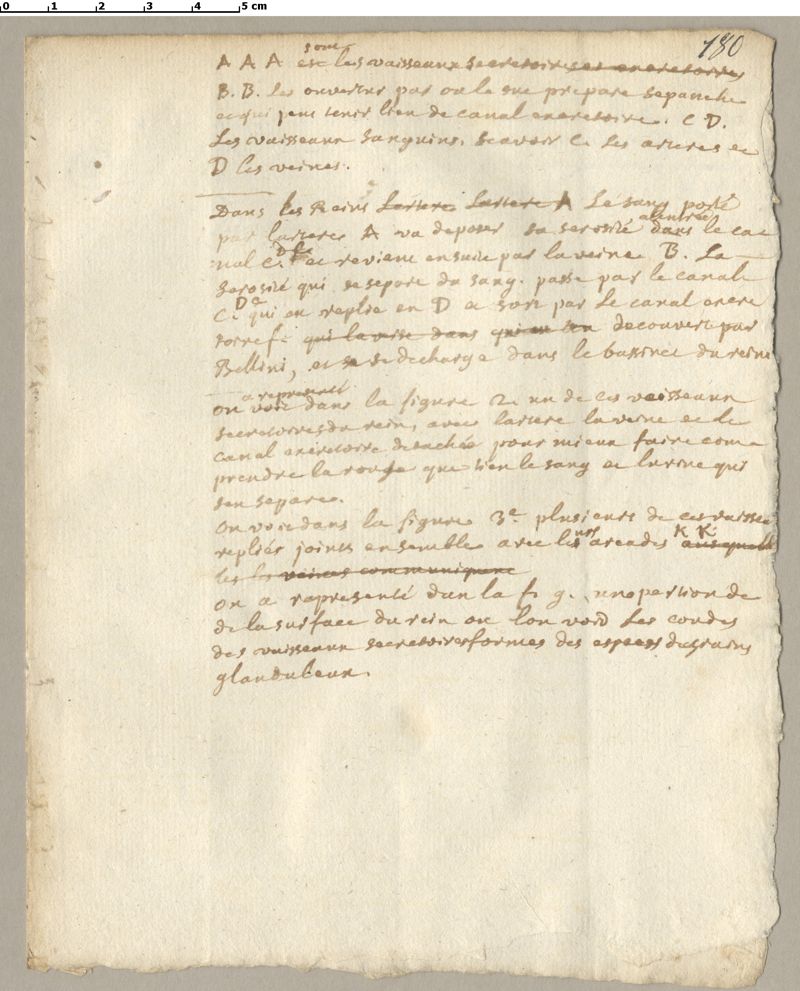 0 1 2 3 4 5 cm
180
sont
A A A est les vaisseaux secretoires et excretoires
B. B. les ouvertur par ou le suc prepare sepanche
et qui peut tenir lieu de canal excretoire. C D.
Les vaisseaux sanguins. Scavoir C. les arteres et
D les veines.
Dans les Reins Lartere Lartere A Le sang porté
par larterer A va deposer sa serosité a lentrée dans le ca
nal C. D et revient ensuite par la veine B. La
serosité qui se separe du sang. passe par le canal
C. D qui en replie en D a sort par le canal excre
toire qui la verse dans decouvert par
Bellini, et se decharge dans le bassinet du rein
a representé
on voit dans la figure 2. un de ces vaisseaux
secretoires du rein, avec lartere la veine et le
canal excretoire detachée pour mieux faire com
prendre la que tien le sang et lurine qui
sen separe.
On voit dans la figure 3e plusieurs de ces vaisse
repliés joints ensemble avec les arcades K K ausquel
les les veines communiquent
on a representé dan la fig. une portion de
de la surface du rein ou lon void les coudes
des vaisseaux secretoires formes des especes de grains
glanduleux.